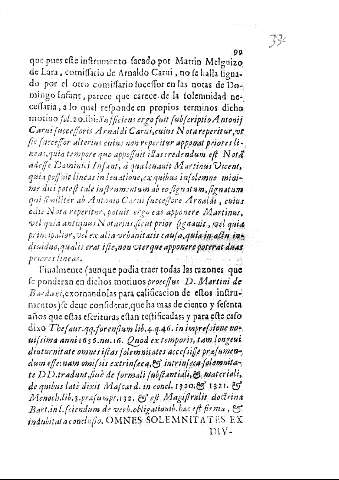 33
99
que pues este instrumento sacado por Martin Melguizo
de Lara, comissario de Arnaldo Carui, no se halla signa-
do por el otro comissario sucessor en las notas de Do-
mingo Infant, parece que carece de la solemnidad ne-
cessaria, a lo qual responde en propios terminos dicho
motiuo fol. 20. ibi: Sufficiens ergo fuit subscriptio Antonij
Carui successoris Arnaldi Carui, cuius Nota reperitur, vt
sic successor alterius cuius non reperitur apponat priores li-
neas, quia tempore que apposuit illas credendum est Nota
adesse Dominici Infant, à qua leuauit Martinus Vicent,
quia posuit lineas in leuatione, ex quibus insolemne mini-
me dici potest tale instrumentum ab eo signatum, signatum
qui similiter ab Antonio Carui successore Arnaldi, cuius
est Nota reperitur, potuit ergo eas apponere Martinus,
vel quia antiquus Notarius, sicut prior signauit, vel quia
principalior, vel ex alia vrbanitatis causa, quia in actu in-
diuiduo, qualis erat iste, non vterque apponere poterat duas
priores lineas.
Finalmente (aunque podia traer todas las razones que
se ponderan en dichos motiuos processus D. Martini de
Bardaxi, exornandolas para calificacion de estos instru-
mentos) se deue considerar, que ha mas de ciento y setenta
años que estas escrituras estan testificadas; y para este caso
dixo Thesaur. qq. forensium lib. 4. q. 46. in impressione no-
uissima anni 1656. nu. 16. Quod ex temporis, tam longeui
diuturnitate omnes istas solemnitates accessisse præsumen-
dum esse nam omissis extrinseca, & intrinseca solemnita-
te DD. tradunt, siuè de formali substantiali, & materiali,
de quibus latè dixit Mascard. in concl. 1320. & 1321. &
Menoch. lib. 3. præsumpt. 132. & est Magistralis doctrina
Bart. in l. sciendum de verb. obligationib. hac est firma, &
indubitata conclusio. OMNES SOLEMNITATES EX
DIV-